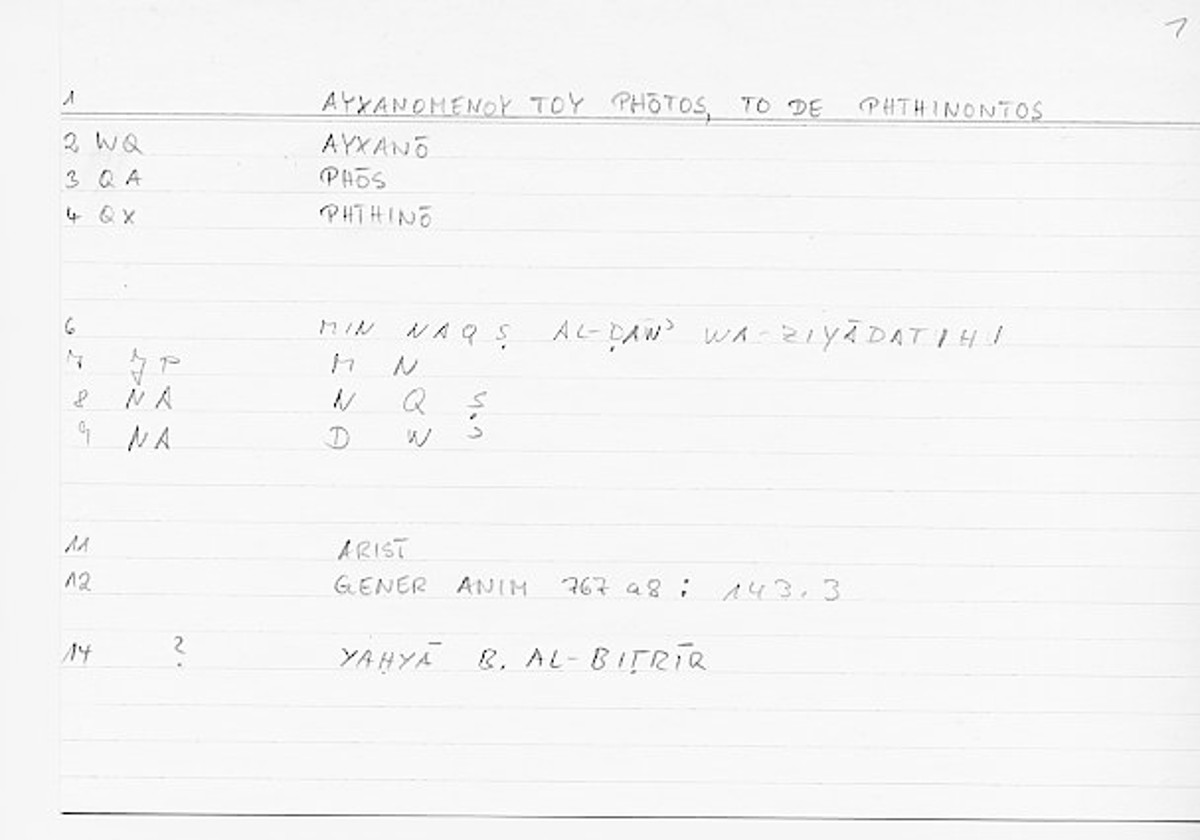 1
1 AYXANOMENOY TOY PHŌTOS, TO DE PHTHINONTOS
2 WQ AYXANŌ
3 QA PHŌS
4 QX PHTHINŌ
6 MIN NAQṢ AL-ḌAWʾ WA-ZIYĀDATIHI
7 JP M N
8 NA N Q Ṣ
9 NA D W ʾ
11 ARIST
12 GENER ANIM 767 a8 : 143.3
14 ? YAḤYĀ B. AL-BIṬRĪQ